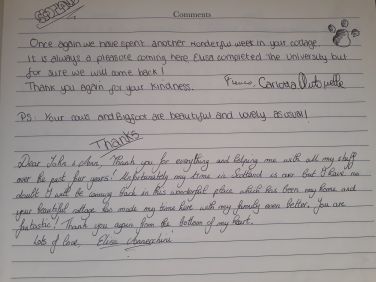 Comments
Once again we have spent another wonderful week in your cottage.
It is always a pleasure coming here. Elisa completed the University but
for sure we will come back!
Thank you again for your kindness.
PS: Your cows and Bigfoot are beautiful and lovely as usual!
Thanks
Dear John & Ann, Thank you for everything and helping me with all my stuff
over the past four years! Unfortunately my time in Scotland is over but I have no
doubt I will be coming back in this wonderful place which has been my home and
your beautiful cottage has made my time here with my family even better. You are
fantastic! Thank you again from the bottom of my heart.
Lots of love, Elisa